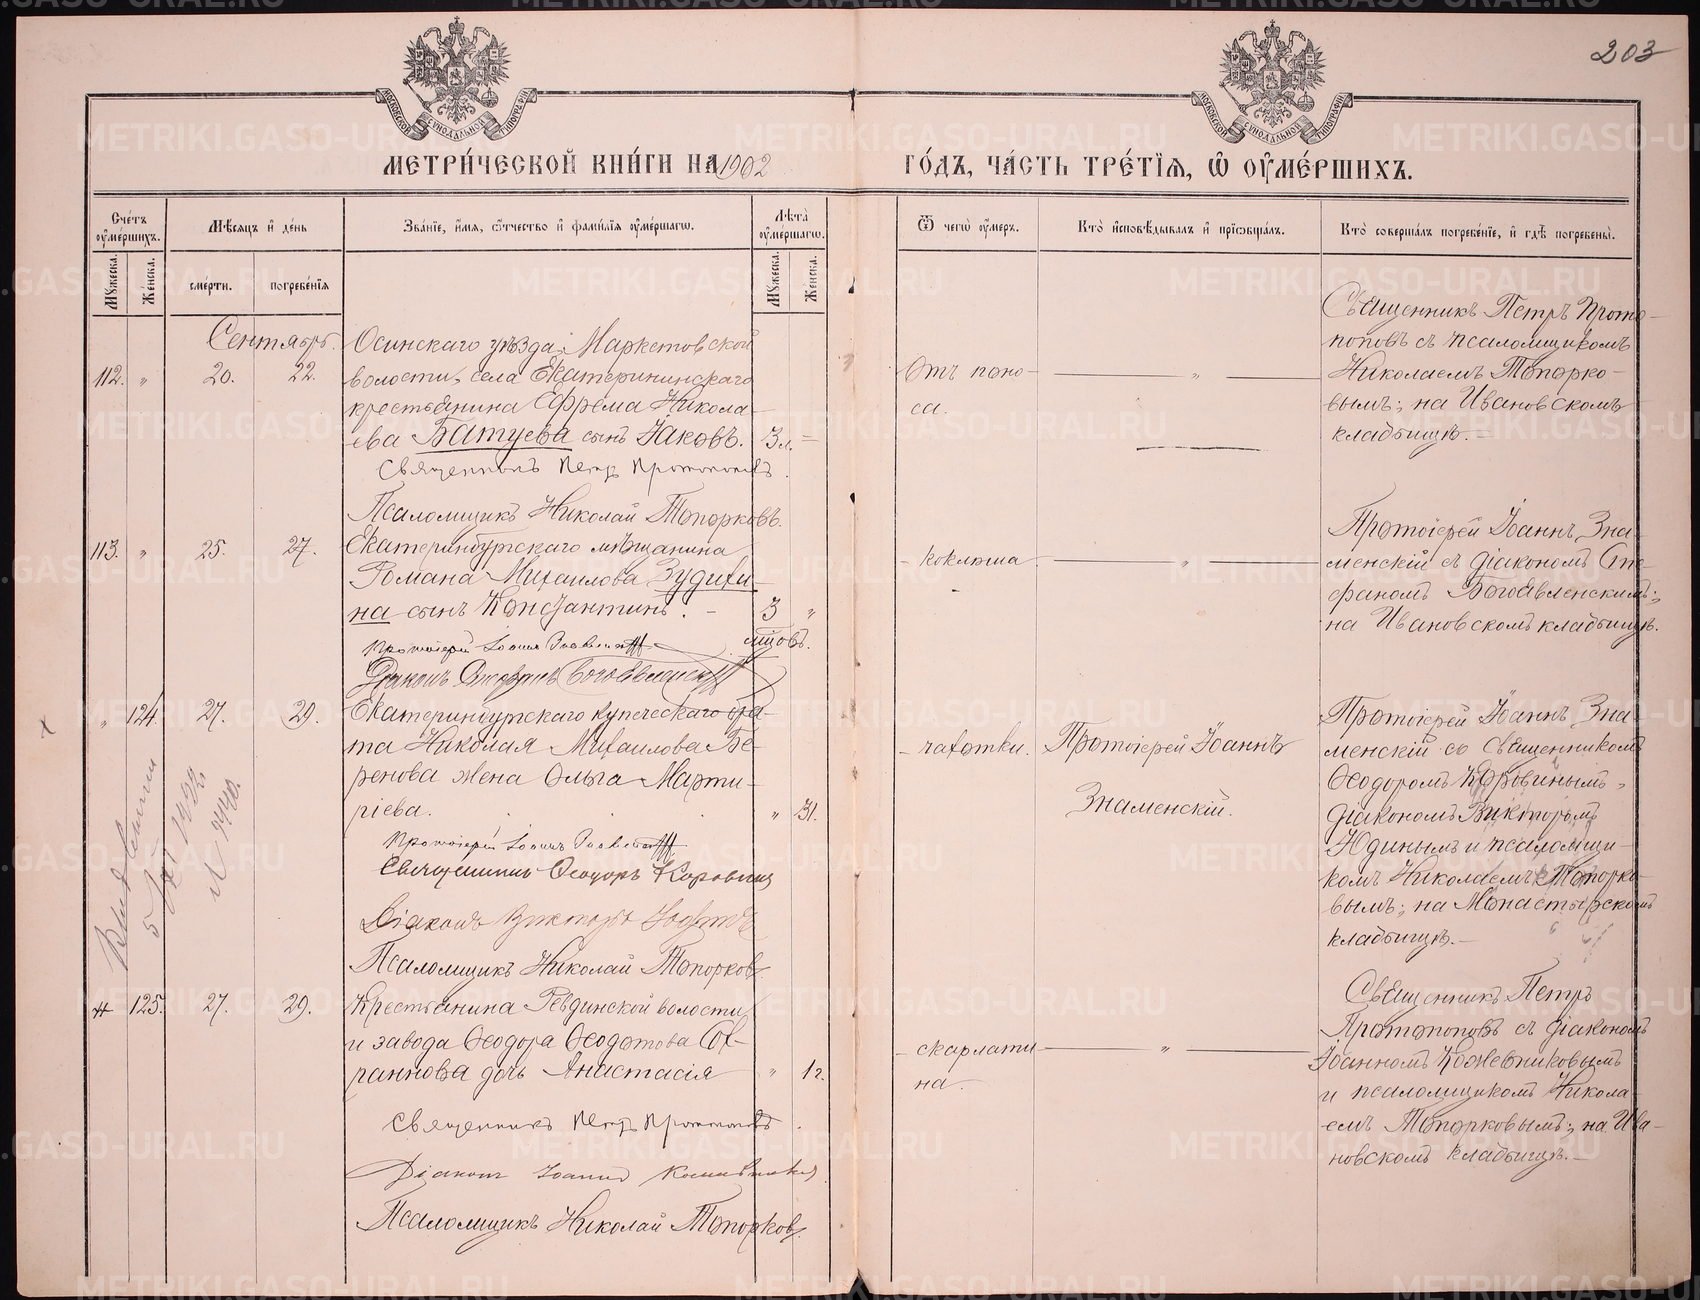 203
МЕТРИ́ЧЕСКОЙ КНИ́ГИ НА 1902 ГО́ДЪ, ЧА́СТЬ ТРЕ́ТЇѦ, Ѡ ОУМЕ́РШИХЪ.
Сче́тъ оуме́ршихъ.
Мѣ́сяцъ и҆ де́нь
Зва́нїе, и҆́мя, ѻ҆́тчество и҆ фами́лїя оуме́ршагѡ.
Лѣ́та оуме́ршагѡ.
Ѿ чегѡ̀ оу҆́меръ.
Кто̀ и҆сповѣ́дывалъ и҆ прїѡбща́лъ.
Кто̀ соверша́лъ погребе́нїе, и҆ гдѣ̀ погребены̀.
Мꙋжеска.
Же́нска.
сме́рти.
погребе́нїя
Мꙋжеска.
Же́нска.
Сентябрь.
112. „ 20. 22.
Осинскаго уѣзда, Маркетовской
волости, села Екатерининскаго
крестьянина Ефрема Никола-
ева Батуева сынъ Іаковъ. 3 л. =
Священникъ Петръ Протопоповъ.
Псаломщикъ Николай Топорковъ.
Отъ поно-
са.
„
Священникъ Петръ Прото-
поповъ съ псаломщикомъ
Николаемъ Топорко-
вымъ; на Ивановскомъ
кладбищѣ.
113. „ 25. 27.
Екатеринбургскаго мѣщанина
Романа Михаилова Зудихи-
на сынъ Константинъ. 3 „
мцовъ.
Протоіерей Іоаннъ Знаменскій
Діаконъ Стефанъ Богоявленскій
- коклюша
„
Протоіерей Іоаннъ Зна-
менскій съ діакономъ Сте-
фаномъ Богоявленскимъ;
на Ивановскомъ кладбищѣ.
„ 124. 27. 29.
Екатеринбургскаго купеческаго бра-
та Николая Михаилова Бе-
ренова жена Ольга Марти-
ріева. „ 31.
Протоіерей Іоаннъ Знаменскій
Священникъ Ѳеодоръ Коровинъ
Діаконъ Викторъ Юдинъ
Псаломщикъ Николай Топорковъ
- чахотки.
Протоіерей Іоаннъ
Знаменскій.
Протоіерей Іоаннъ Зна-
менскій со священникомъ
Ѳеодоромъ Коровинымъ,
діакономъ Викторомъ
Юдинымъ и псаломщи-
комъ Николаемъ Топорко-
вымъ; на Монастырскомъ
кладбищѣ.
1922
125. 27. 29.
Крестьянина Ревдинской волости
и завода Ѳеодора Ѳеодотова Сох-
раннова дочь Анастасія „ 1 г.
Священникъ Петръ Протопоповъ.
Діаконъ Іоаннъ Кожевниковъ
Псаломщикъ Николай Топорковъ.
- скарлати-
на.
„
Священникъ Петръ
Протопоповъ съ діакономъ
Іоанномъ Кожевниковымъ
и псаломщикомъ Никола-
емъ Топорковымъ; на Ива-
новскомъ кладбищѣ.
METRIKI.GASO-URAL.RU